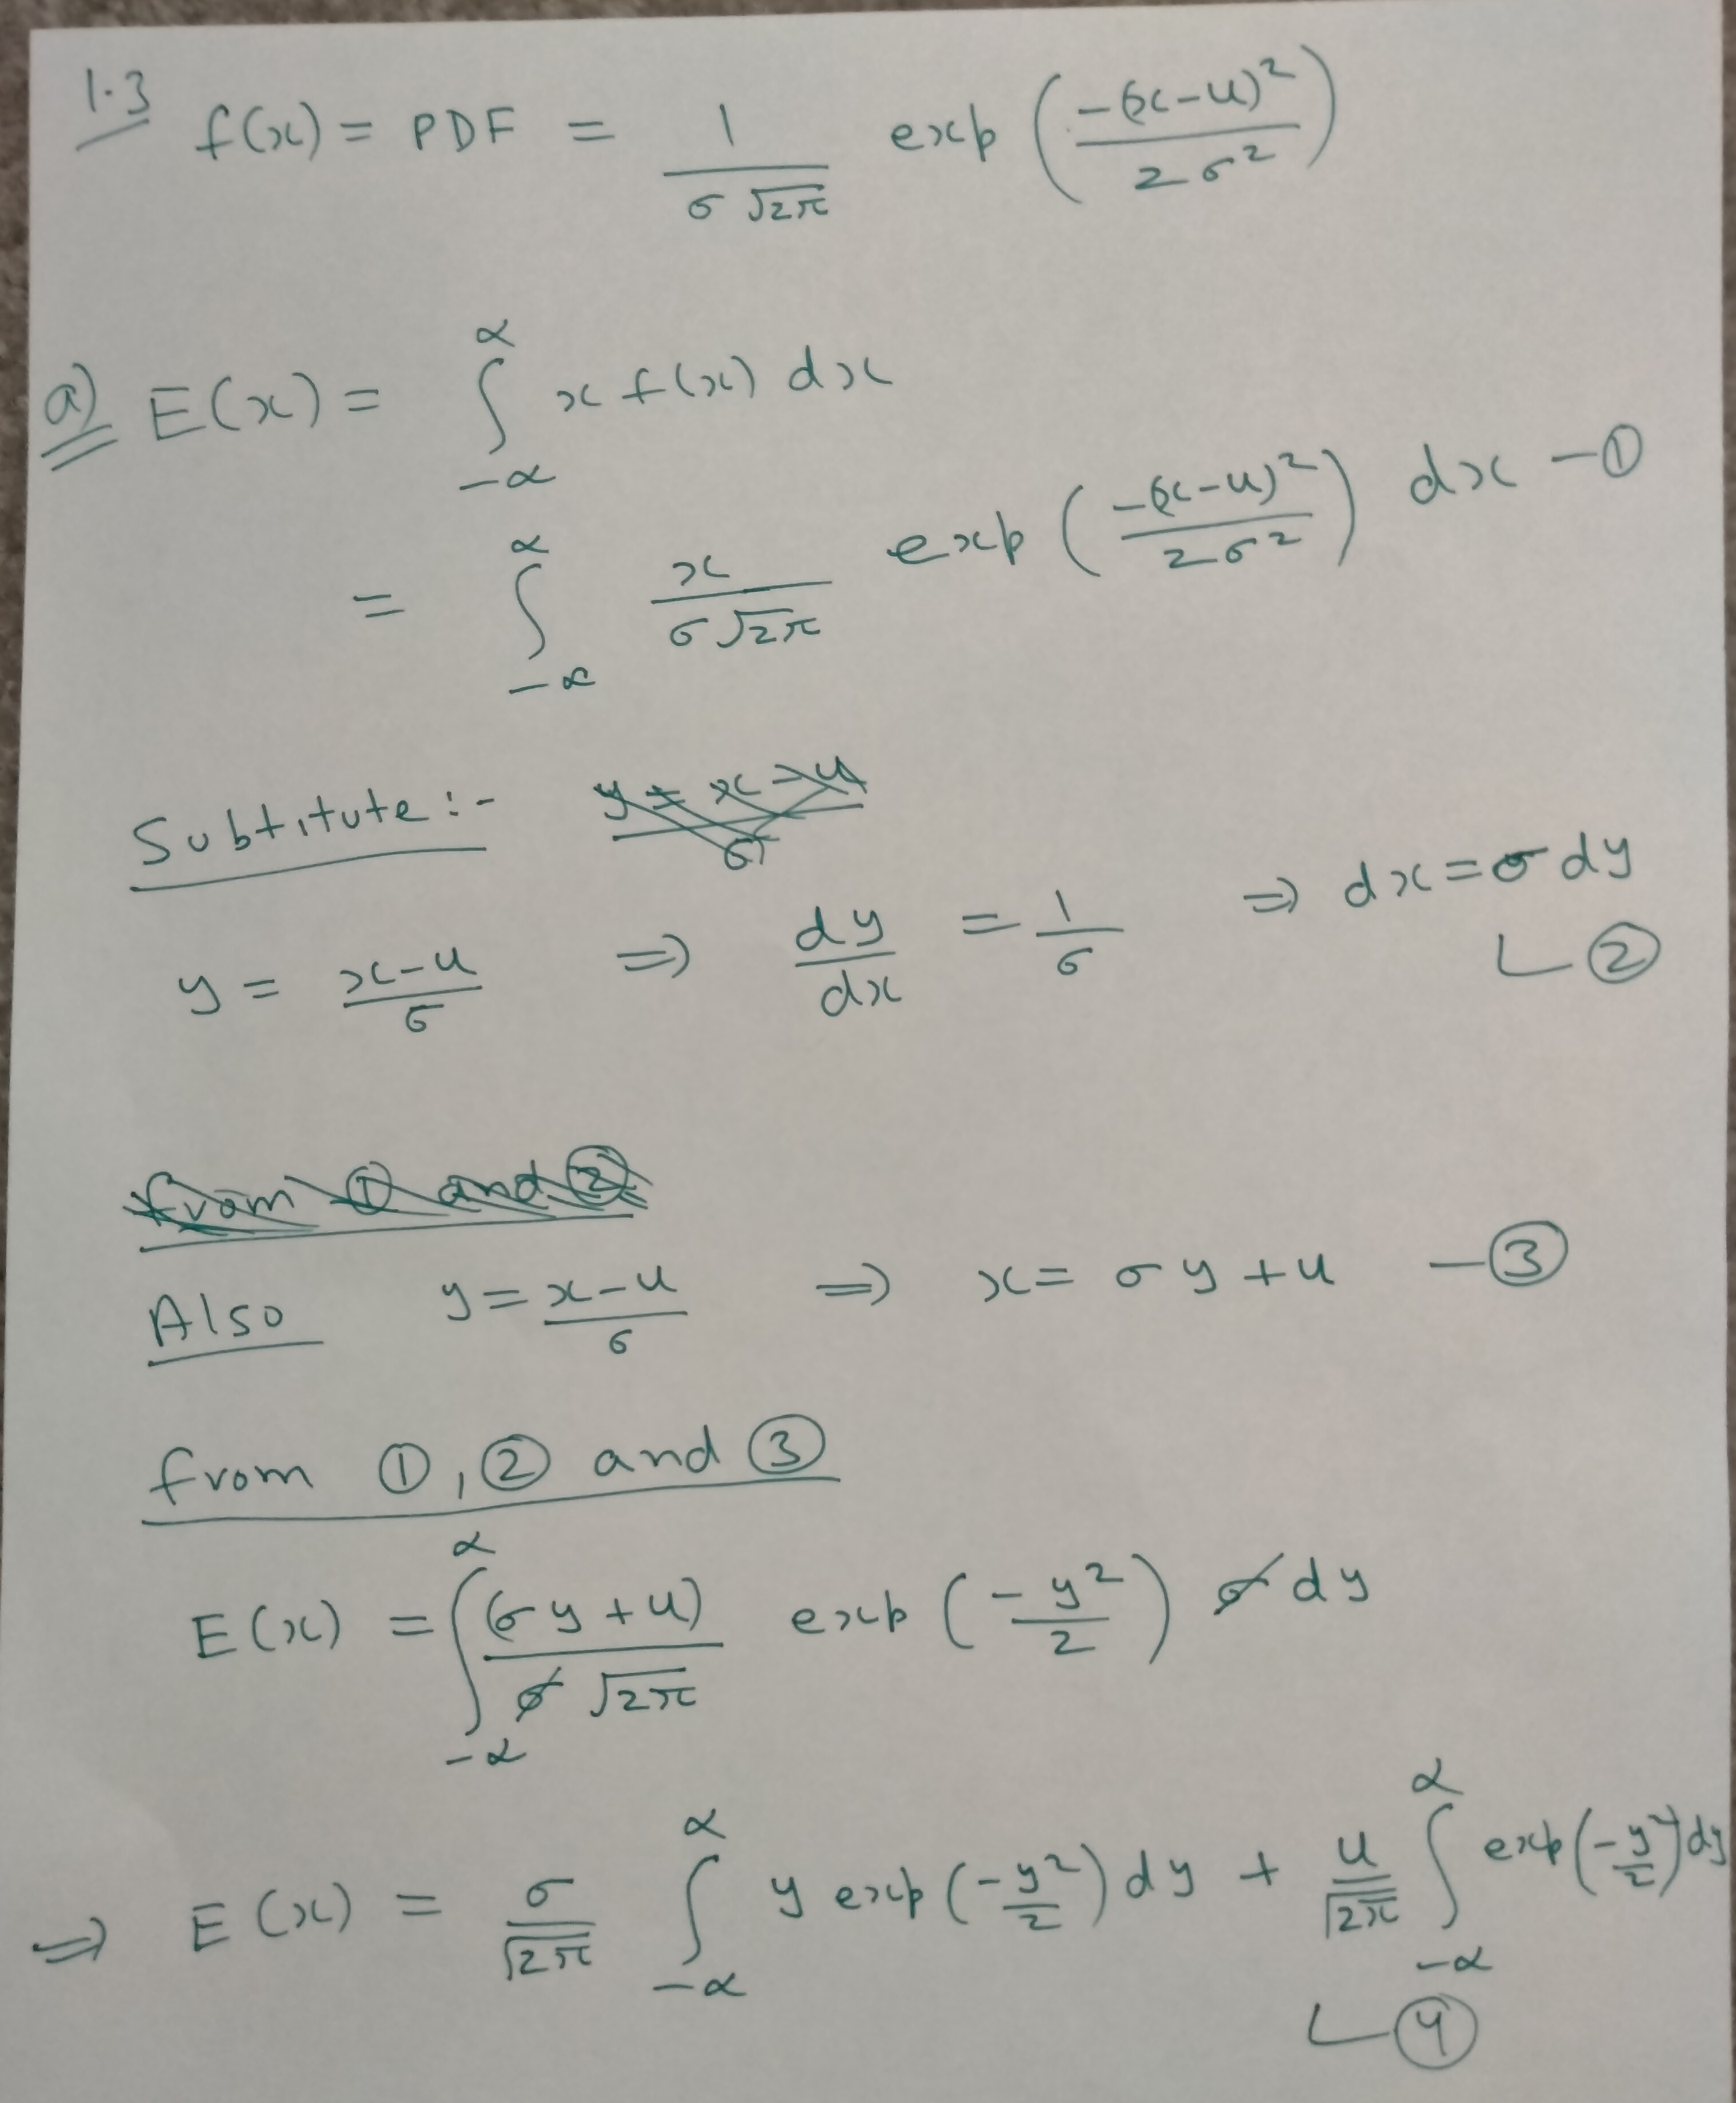 1.3 f(x) = PDF = 1 / (σ √2π) exp (-(x-u)² / 2σ²)
a) E(x) = ∫_{-α}^{α} x f(x) dx
= ∫_{-α}^{α} x / (σ √2π) exp (-(x-u)² / 2σ²) dx - ①
Subtitute :- y = x-u / σ
y = x-u / σ ⇒ dy / dx = 1 / σ ⇒ dx = σ dy
└ ②
from ① and ②
Also y = x-u / σ ⇒ x = σ y + u - ③
from ①, ② and ③
E(x) = ∫_{-α}^{α} (σ y + u) / (σ √2π) exp (-y² / 2) σ dy
⇒ E(x) = σ / √2π ∫_{-α}^{α} y exp (-y² / 2) dy + u / √2π ∫_{-α}^{α} exp (-y² / 2) dy
└ ④